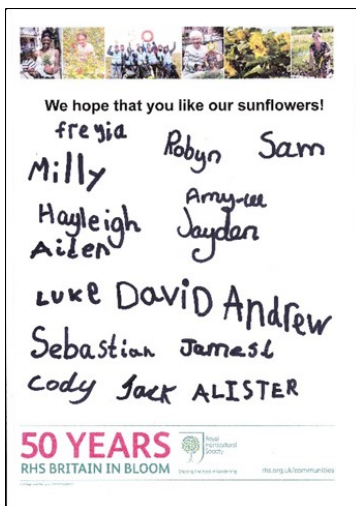 We hope that you like our sunflowers!
freyia Robyn Sam
Milly
Amy-lee
Hayleigh Jayden
Ailen
LUKE DaviD Andrew
Sebastian James L
Cody Jack ALISTER
50 YEARS
RHS BRITAIN IN BLOOM
Royal
Horticultural
Society
Sharing the best in Gardening
rhs.org.uk/communities